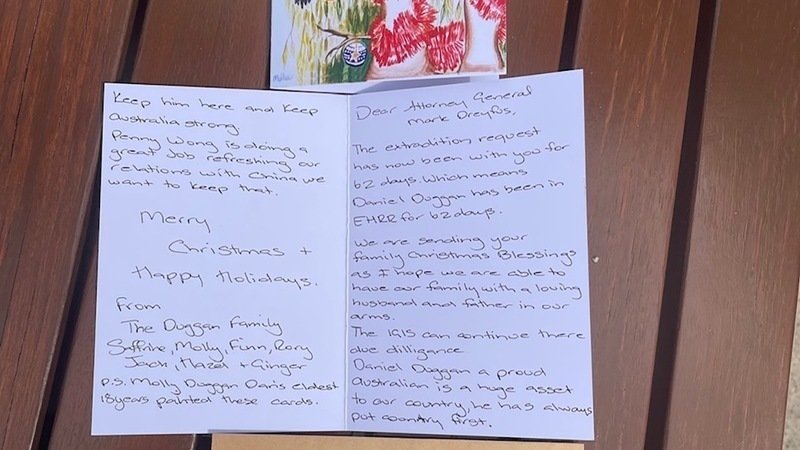 Molli
Keep him here and keep
Australia strong
Penny Wong is doing a
great job refreshing our
relations with China we
want to keep that.
Merry
Christmas +
Happy Holidays.
From
The Duggan Family
Saffrine, Molly, Finn, Rory
Jack, Hazel + Ginger
p.s. Molly Duggan Dan's eldest
18years painted these cards.
Dear Attorney General
Mark Dreyfus,
The extradition request
has now been with you for
62 days. Which means
Daniel Duggan has been in
EHRR for 62 days.
We are sending your
family Christmas Blessings
as I hope we are able to
have our family with a loving
husband and father in our
arms.
The IGIS can continue there
due dilligance
Daniel Duggan a proud
Australian is a huge asset
to our country, he has always
put country first.